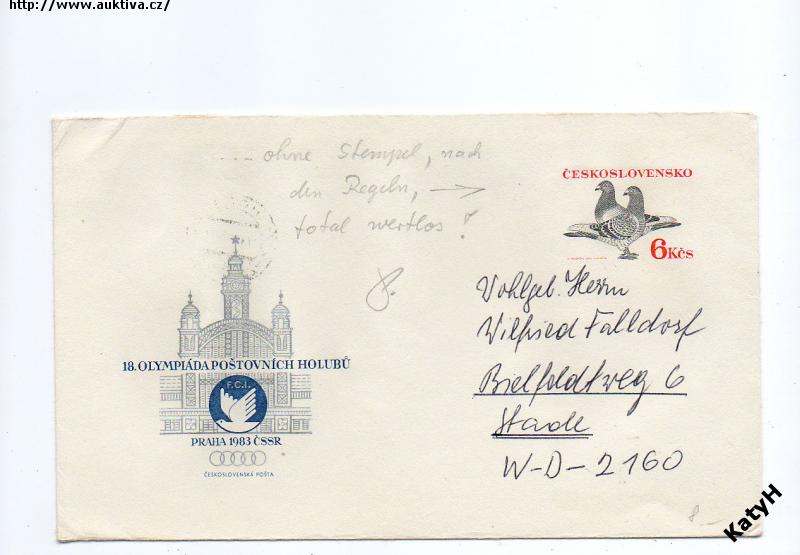 http://www.auktiva.cz/
... ohne Stempel, nach
den Regeln, →
total wertlos!
ČESKOSLOVENSKO
6 Kčs
18. OLYMPIÁDA POŠTOVNÍCH HOLUBŮ
F.C.I.
PRAHA 1983 ČSSR
ČESKOSLOVENSKÁ POŠTA
Wohlgeb. Herrn
Wilfried Falldorf
Bielfeldtweg 6
Stade
W-D-2160
8
KatyH